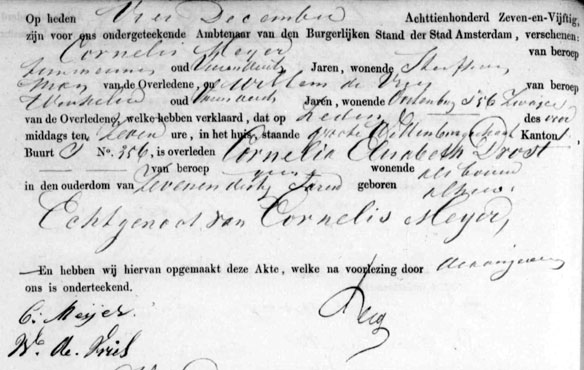 Op heden Vier December Achttienhonderd Zeven-en-Vijftig,
zijn voor ons ondergeteekende Ambtenaar van den Burgerlijken Stand der Stad Amsterdam, verschenen:
Cornelis Meyer van beroep
oud Jaren, wonende
Man van de Overledene, en Willem de Vries van beroep
Winkelier oud Jaren, wonende 356
van de Overledene, welke hebben verklaard, dat op heden des voor
middags ten zeven ure, in het huis, staande groote Wittenburgerstraat Kanton 1
Buurt S No. 356, is overleden Cornelia Elisabeth Drost
van beroep geen wonende als boven
in den ouderdom van Zevenendertig Jaren geboren alhier
Echtgenoot van Cornelis Meyer,
En hebben wij hiervan opgemaakt deze Akte, welke na voorlezing door de aangevers
ons is onderteekend.
C. Meijer.
W. de Vries